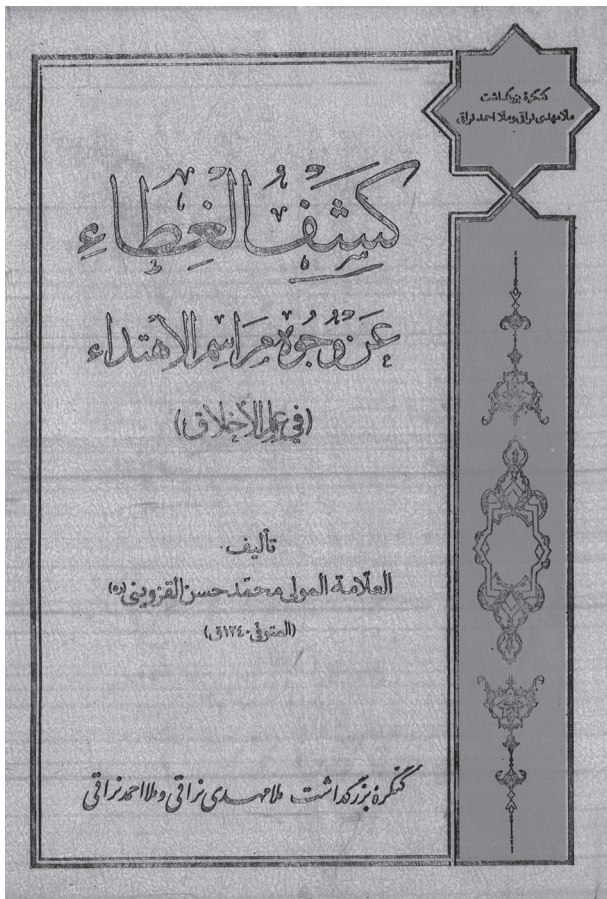 كنگره بزرگداشت
ملا مهدی نراقی و ملا احمد نراقی
كَشفُ الغِطَاءِ
عَن وُجُوهِ مَرَاسِمِ الاِهتِداء
(في عِلمِ الأخلاق)
تأليف
العلّامة المولى محمّد حسن القزويني (ره)
(المتوفى ١٢٤٠ق)
كنگره بزرگداشت ملا مهدی نراقی و ملا احمد نراقی